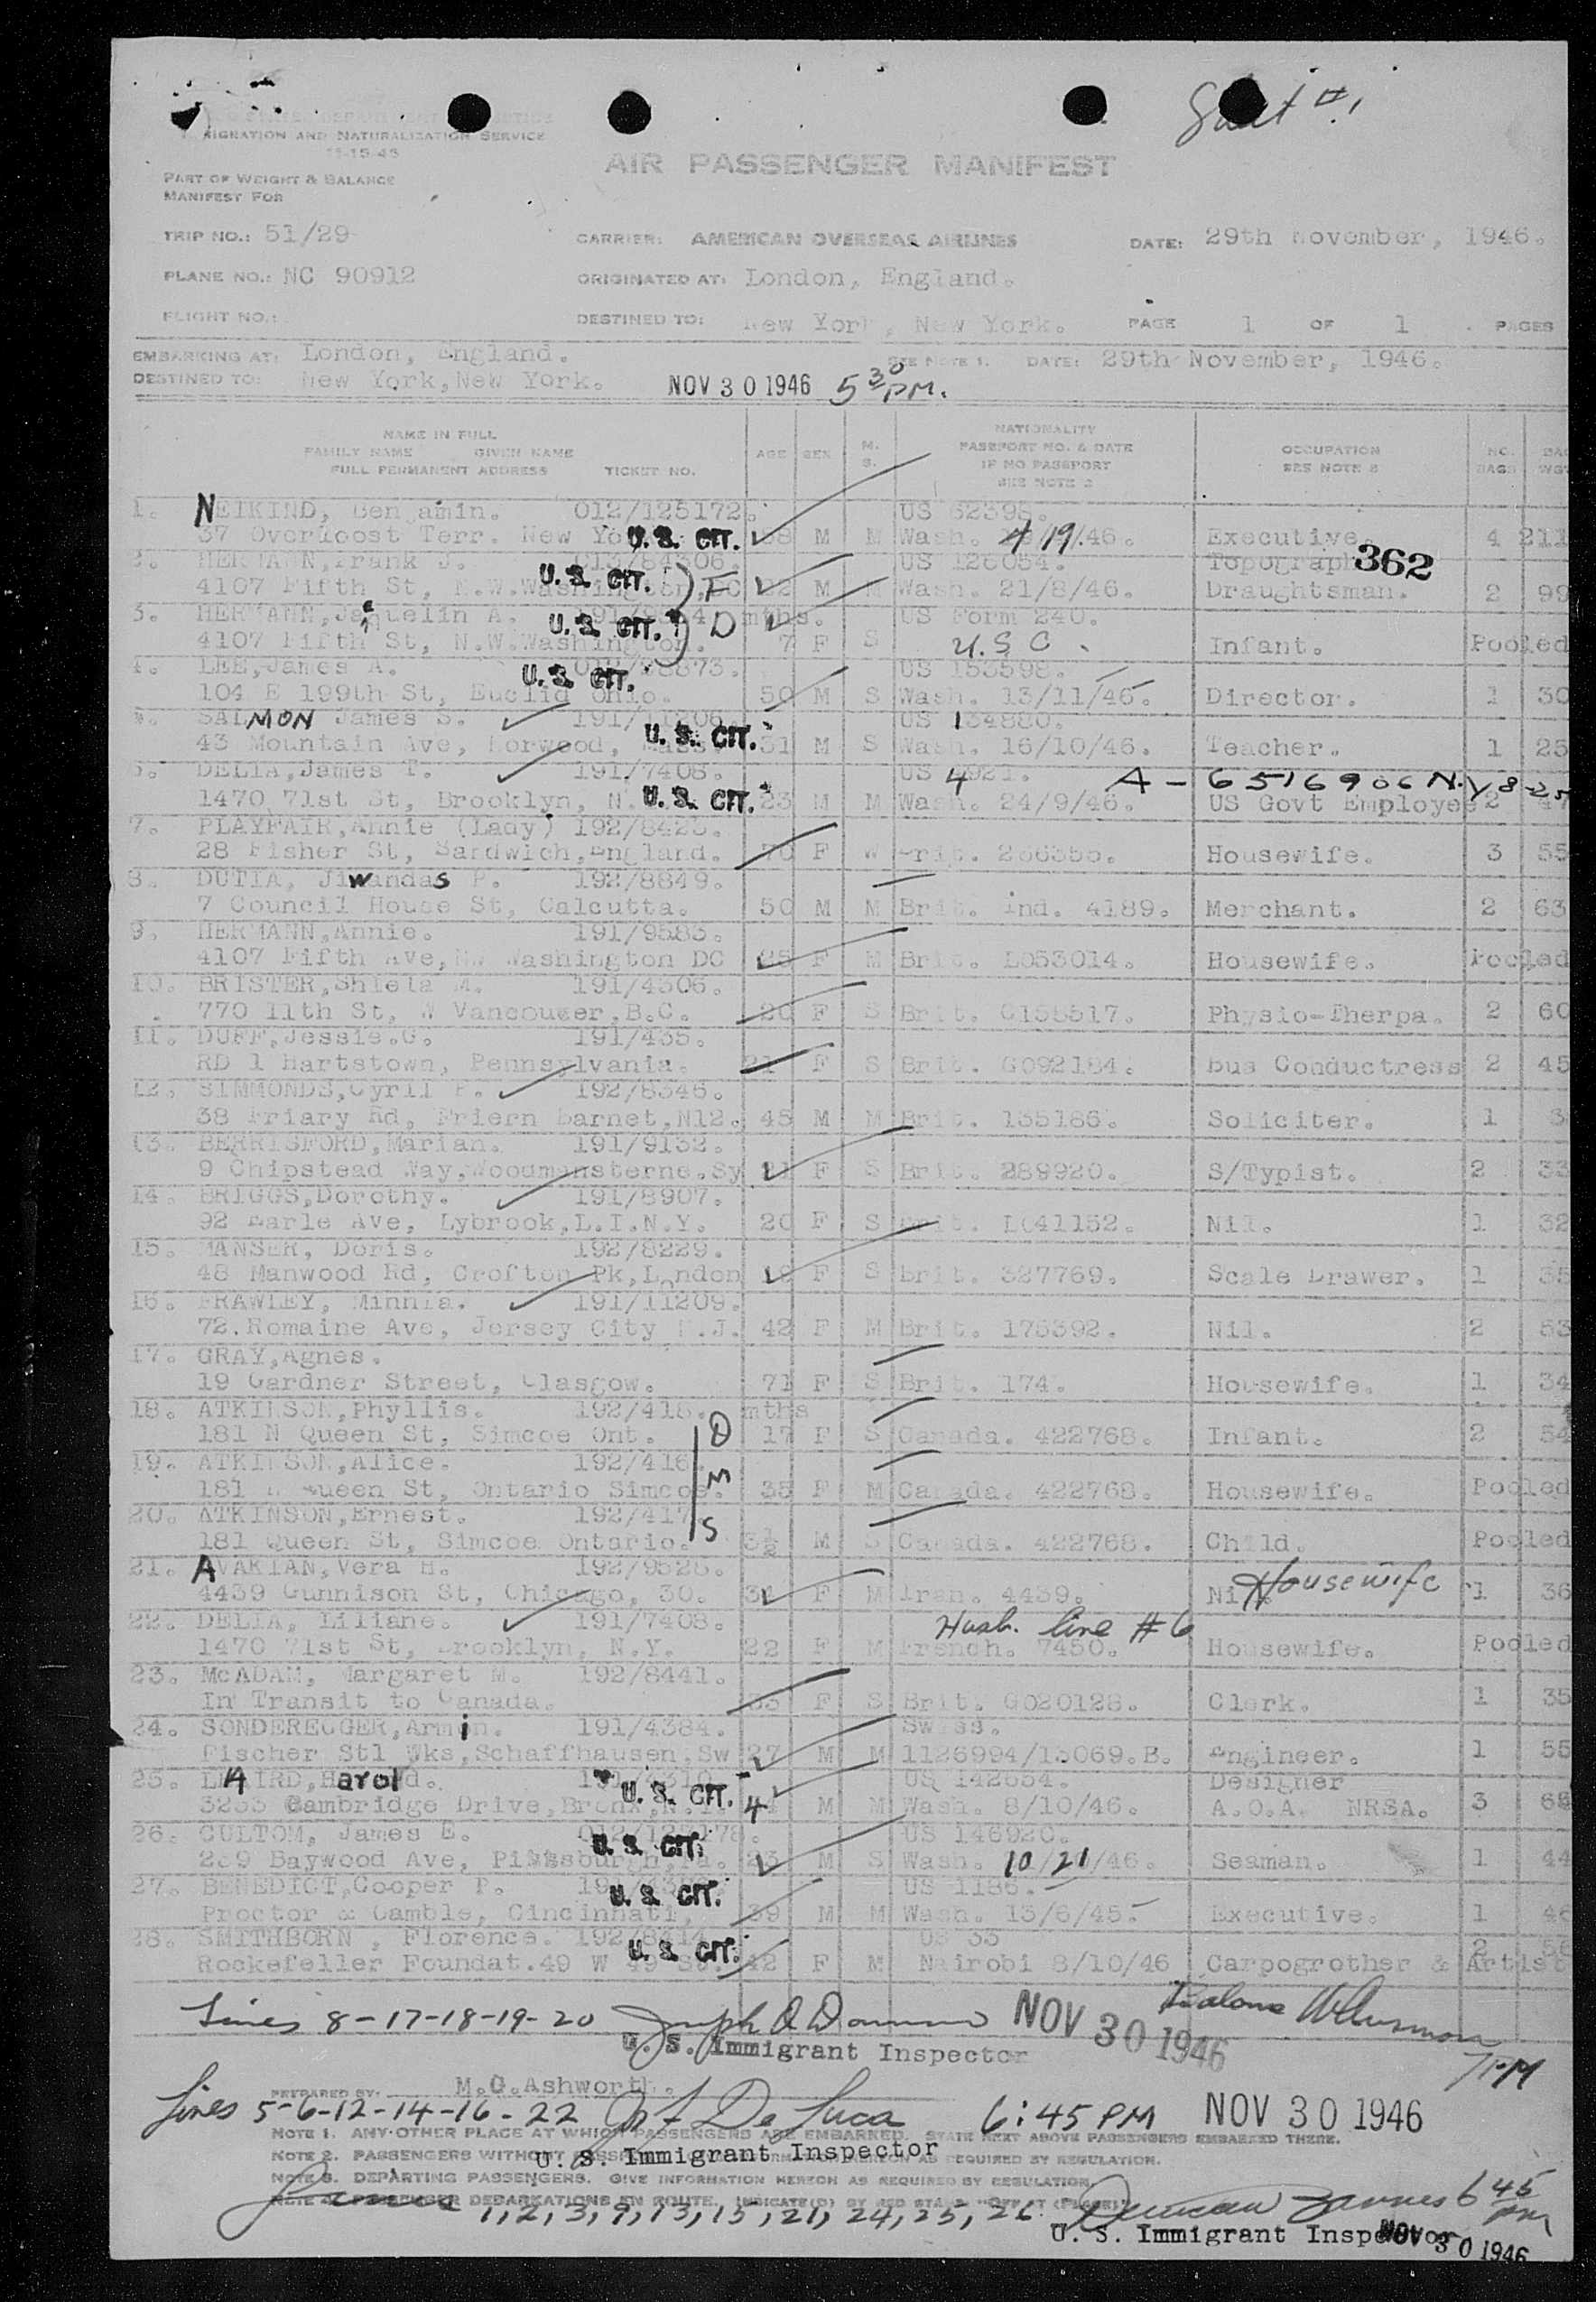 IMMIGRATION AND NATURALIZATION SERVICE
11-15-45
AIR PASSENGER MANIFEST
PART OF WEIGHT & BALANCE
MANIFEST FOR
TRIP NO.: 51/29 CARRIER: AMERICAN OVERSEAS AIRLINES DATE: 29th November, 1946.
PLANE NO.: NC 90912 ORIGINATED AT: London, England.
FLIGHT NO.: DESTINED TO: New York, New York. PAGE 1 OF 1 PAGES
EMBARKING AT: London, England. SEE NOTE 1. DATE: 29th November, 1946.
DESTINED TO: New York, New York. NOV 30 1946 5 30 PM.
NAME IN FULL
FAMILY NAME GIVEN NAME
FULL PERMANENT ADDRESS TICKET NO. AGE SEX M. S. NATIONALITY PASSPORT NO. & DATE IF NO PASSPORT SEE NOTE 2 OCCUPATION SEE NOTE 3 NO. BAGS
1. NEIKIND, Benjamin. 012/125172. US 62398.
37 Overloost Terr. New U.S. CIT. M M Wash. 4/19/46. Executive. 4 211
2. HERMANN, Frank J. US 126054. Topograph 362
4107 Fifth St, N.W. Washington, DC U.S. CIT. F M M Wash. 21/8/46. Draughtsman. 2 99
3. HERMANN, Jaquelin A. mths. US Form 240.
4107 Fifth St, N.W. Washington. U.S. CIT. D 7 F S U.S.C. Infant. Pooled
4. LEE, James A. US 153598.
104 E 199th St, Euclid Ohio. U.S. CIT. 50 M S Wash. 13/11/46. Director. 1 30
5. SALMON James S. US 134880.
43 Mountain Ave, Norwood, Mass. U.S. CIT. 31 M S Wash. 16/10/46. Teacher. 1 25
6. DELIA, James T. 191/7408. US 4921. A-6516906 N.Y. 8-25
1470 71st St, Brooklyn, N. U.S. CIT. 23 M M Wash. 24/9/46. US Govt Employee 2 47
7. PLAYFAIR, Annie (Lady) 192/8423.
28 Fisher St, Sandwich, England. 70 F W Brit. 266355. Housewife. 3 55
8. DUTIA, Jiwandas P. 192/8849.
7 Council House St, Calcutta. 50 M M Brit. Ind. 4189. Merchant. 2 63
9. HERMANN, Annie. 191/9583.
4107 Fifth Ave, NW Washington DC 25 F M Brit. L053014. Housewife. Pooled
10. BRISTER, Shiela M. 191/4306.
770 11th St, W Vancouver, B.C. 20 F S Brit. C158517. Physio-Therpa. 2 60
11. DUFF, Jessie.G. 191/435.
RD 1 Hartstown, Pennsylvania. 21 F S Brit. G092184. Bus Conductress 2 45
12. SIMMONDS, Cyril F. 192/8346.
38 Friary Rd, Friern Barnet, N12. 45 M M Brit. 135186. Soliciter. 1
13. BERRISFORD, Marian. 191/9132.
9 Chipstead Way, Woodmansterne. Sy 21 F S Brit. 289920. S/Typist. 2 33
14. BRIGGS, Dorothy. 191/8907.
92 Earle Ave, Lybrook, L.I.N.Y. 20 F S Brit. L041152. Nil. 1 32
15. MANSER, Doris. 192/8229.
48 Manwood Rd, Crofton Pk, London F S Brit. 327769. Scale Drawer. 1 35
16. FRAWLEY, Minnia. 191/11209.
72. Romaine Ave, Jersey City N.J. 42 F M Brit. 176392. Nil. 2 53
17. GRAY, Agnes.
19 Gardner Street, Glasgow. 71 F S Brit. 174. Housewife. 1 34
18. ATKINSON, Phyllis. 192/418. mths
181 N Queen St, Simcoe Ont. D 17 F S Canada. 422768. Infant. 2 54
19. ATKINSON, Alice. 192/416.
181 N Queen St, Ontario Simcoe. M 35 F M Canada. 422768. Housewife. Pooled
20. ATKINSON, Ernest. 192/417.
181 Queen St, Simcoe Ontario. S 3½ M S Canada. 422768. Child. Pooled
21. AVAKIAN, Vera H. 192/9528.
4439 Gunnison St, Chicago, 30. 31 F M Iran. 4439. Nil Housewife 1 36
22. DELIA, Liliane. 191/7408. Husb. line #6
1470 71st St, Brooklyn, N.Y. 22 F M French. 7450. Housewife. Pooled
23. McADAM, Margaret M. 192/8441.
In Transit to Canada. 33 F S Brit. G020128. Clerk. 1 35
24. SONDEREGGER, Armin. 191/4384. Swiss.
Fischer Stl Wks, Schaffhausen, Sw 27 M M 1126994/13069.B. Engineer. 1 55
25. LAIRD, Harold. US 142654. Designer
3253 Cambridge Drive, Bronx, N.Y. U.S. CIT. 4 M M Wash. 8/10/46. A.O.A. NRSA. 3 68
26. CULTOM, James E. US 146920.
239 Baywood Ave, Pittsburgh, Pa. U.S. CIT. 23 M S Wash. 10/21/46. Seaman. 1 44
27. BENEDICT, Cooper P. US 1186.
Proctor & Gamble, Cincinnati, U.S. CIT. 39 M M Wash. 13/6/45. Executive. 1 46
28. SMITHBORN, Florence. US 33 2 56
Rockefeller Foundat. 49 W 49 St. U.S. CIT. 42 F M Nairobi 8/10/46 Carpogrother & Artist
Lines 8-17-18-19-20 NOV 30 1946
U. S. Immigrant Inspector 7PM
PREPARED BY: M.G.Ashworth.
Lines 5-6-12-14-16-22 De Luca 6:45 PM NOV 30 1946
NOTE 1. ANY OTHER PLACE AT WHICH PASSENGERS ARE EMBARKED. STATE NEXT ABOVE PASSENGERS EMBARKED THERE.
NOTE 2. PASSENGERS WITHOUT AS REQUIRED BY REGULATION.
U. S. Immigrant Inspector
NOTE 3. DEPARTING PASSENGERS. GIVE INFORMATION HEREON AS REQUIRED BY REGULATION.
PASSENGER DEBARKATIONS EN ROUTE.
1, 2, 3, 9, 13, 15, 21, 24, 25, 26 6 45 PM
U. S. Immigrant Inspector NOV 30 1946